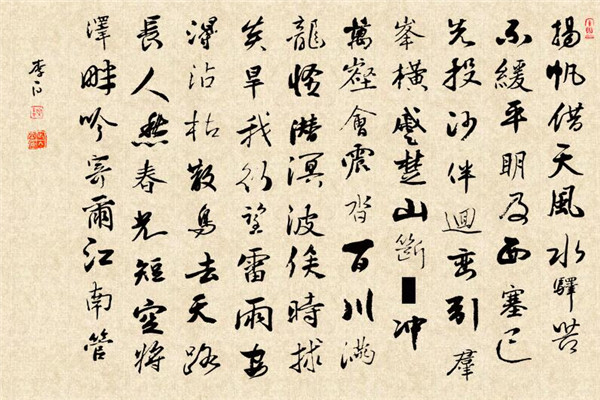 揚帆借天風水驛苦
不緩平明及西塞已
先投沙伴迴巒引羣
峯橫蹙楚山斷冲
萬壑會震沓百川滿
龍怪潛溟波俟時救
炎旱我行望雷雨安
得沾枯散鳥去天路
長人愁春光短空將
澤畔吟寄爾江南管
李白